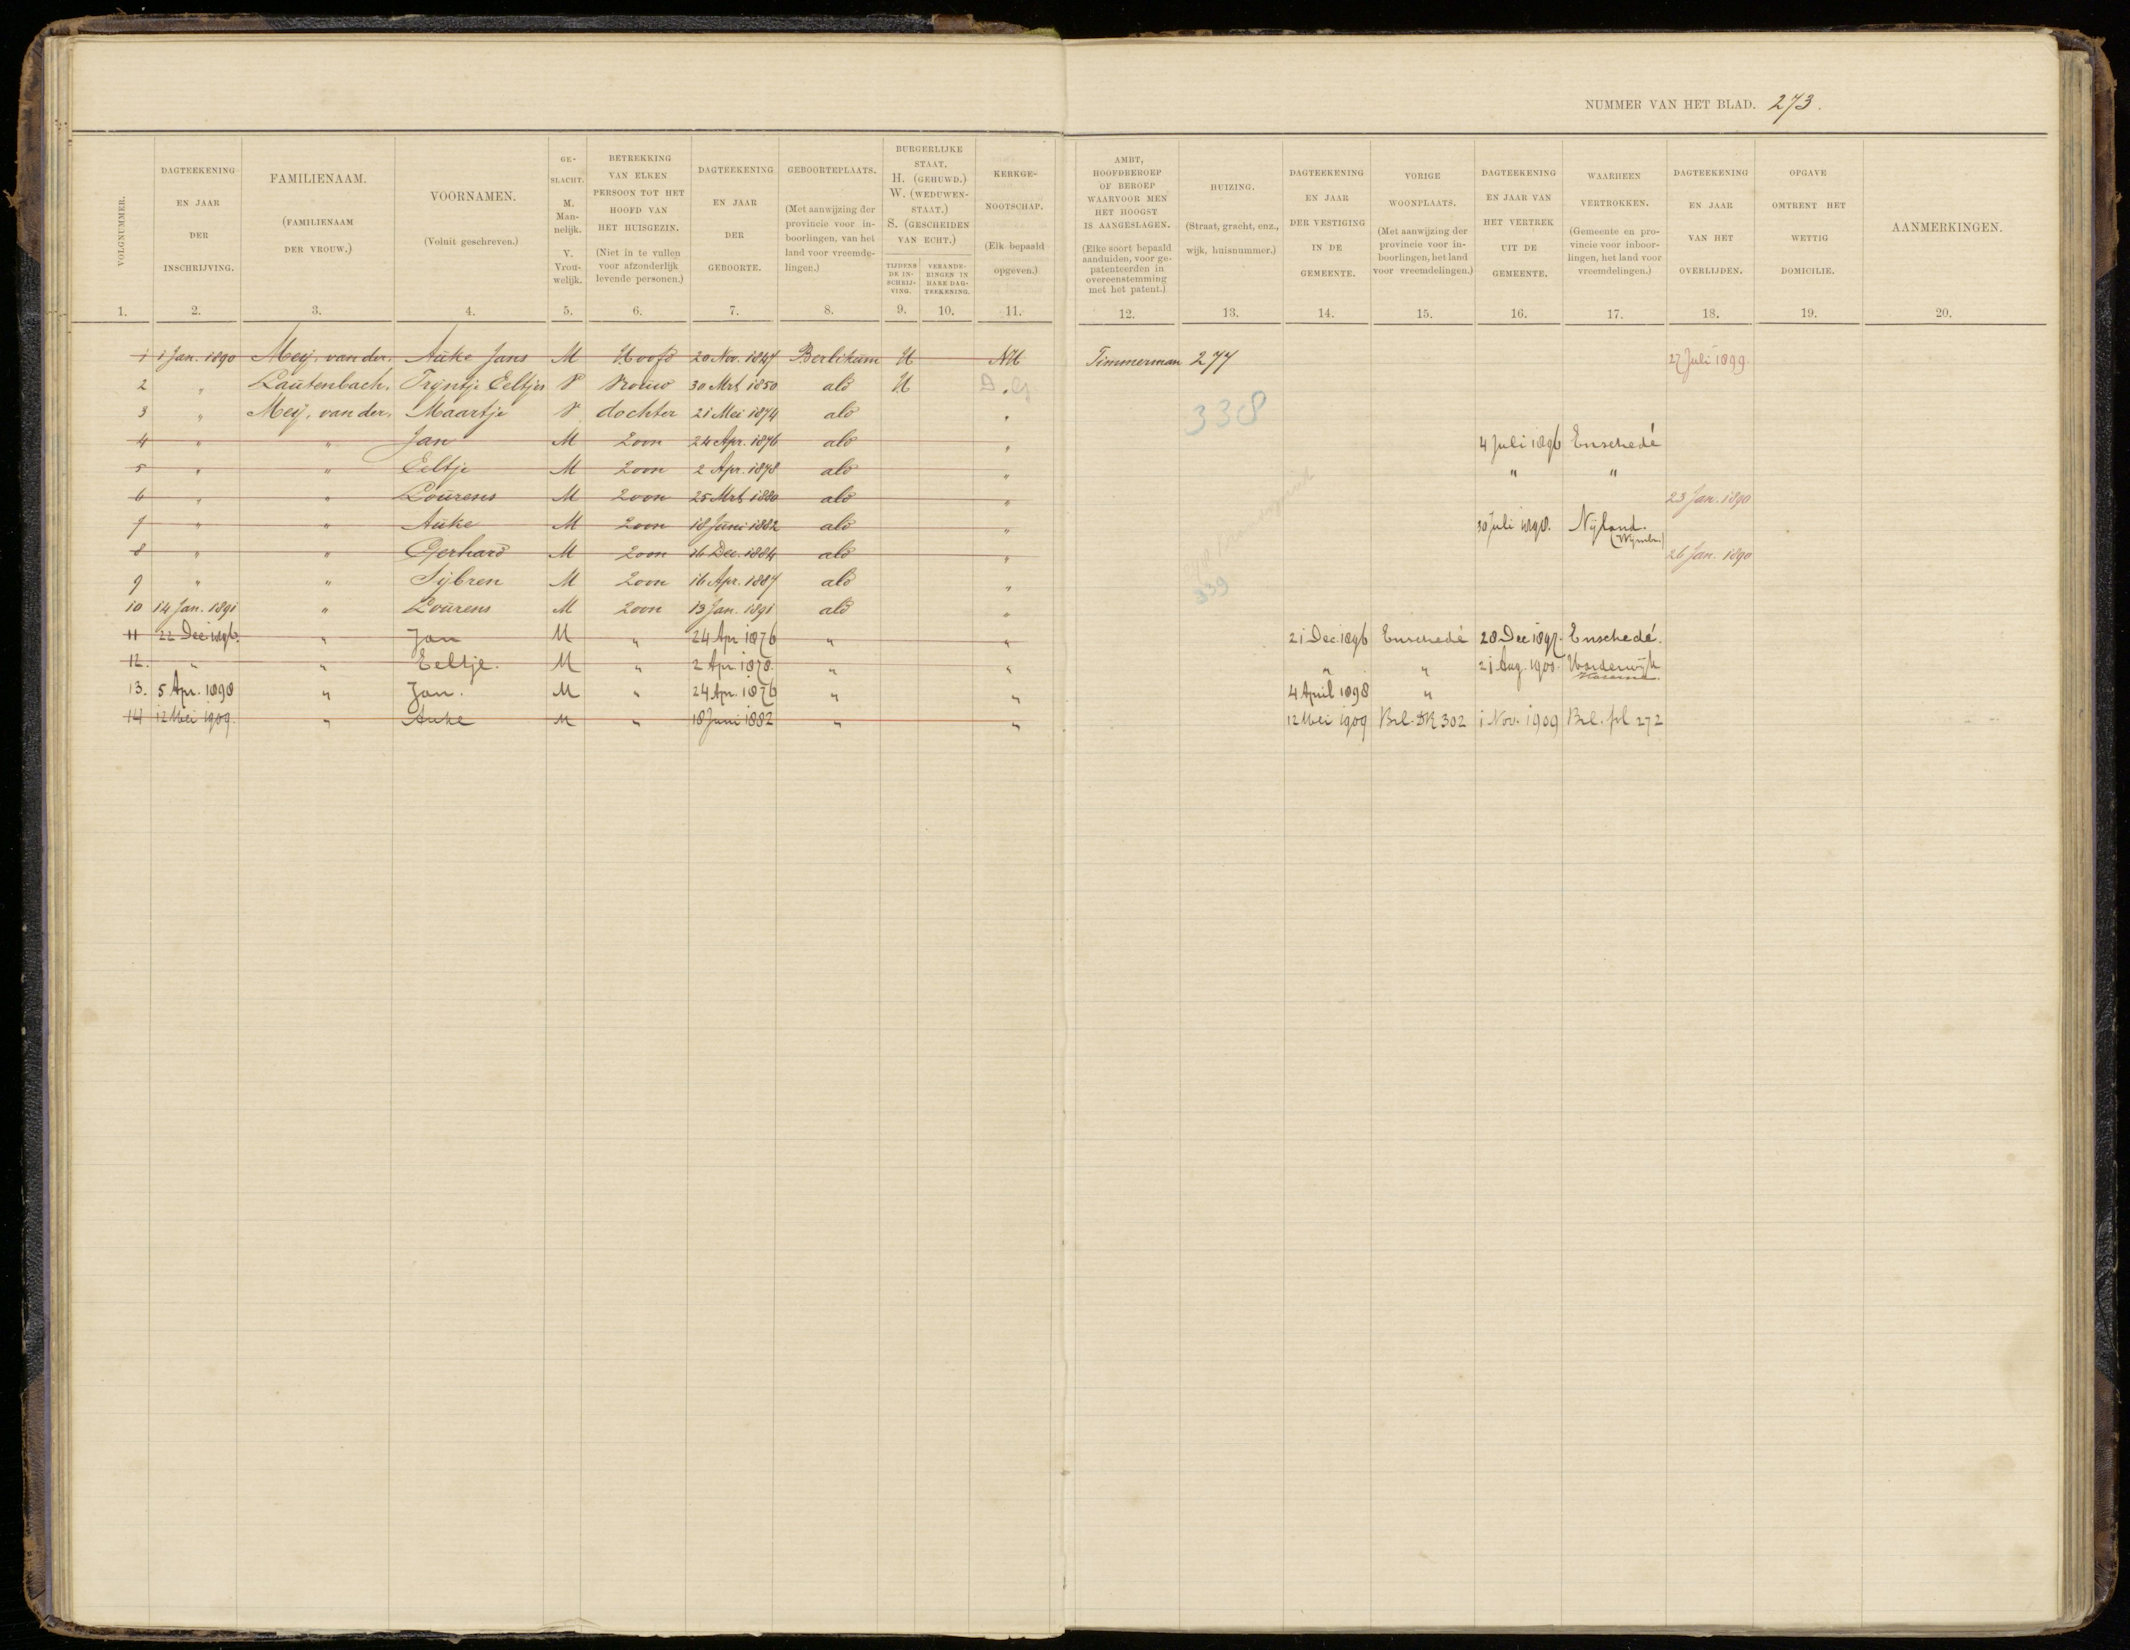 NUMMER VAN HET BLAD. 273.
VOLGNUMMER. DAGTEEKENING EN JAAR DER INSCHRIJVING. FAMILIENAAM. (FAMILIENAAM DER VROUW.) VOORNAMEN. (Voluit geschreven.) GESLACHT. M. Mannelijk. V. Vrouwelijk. BETREKKING VAN ELKEN PERSOON TOT HET HOOFD VAN HET HUISGEZIN. (Niet in te vullen voor afzonderlijk levende personen.) DAGTEEKENING EN JAAR DER GEBOORTE. GEBOORTEPLAATS. (Met aanwijzing der provincie voor inboorlingen, van het land voor vreemdelingen.) BURGERLIJKE STAAT. H. (GEHUWD.) W. (WEDUWENSTAAT.) S. (GESCHEIDEN VAN ECHT.) TIJDENS DE INSCHRIJVING. VERANDERINGEN IN HARE DAGTEEKENING. KERKGENOOTSCHAP. (Elk bepaald opgeven.) AMBT, HOOFDBEROEP OF BEROEP WAARVOOR MEN HET HOOGST IS AANGESLAGEN. (Elke soort bepaald aanduiden, voor gepatenteerden in overeenstemming met het patent.) HUIZING. (Straat, gracht, enz., wijk, huisnummer.) DAGTEEKENING EN JAAR DER VESTIGING IN DE GEMEENTE. VORIGE WOONPLAATS. (Met aanwijzing der provincie voor inboorlingen, het land voor vreemdelingen.) DAGTEEKENING EN JAAR VAN HET VERTREK UIT DE GEMEENTE. WAARHEEN VERTROKKEN. (Gemeente en provincie voor inboorlingen, het land voor vreemdelingen.) DAGTEEKENING EN JAAR VAN HET OVERLIJDEN. OPGAVE OMTRENT HET WETTIG DOMICILIE. AANMERKINGEN.
1. 2. 3. 4. 5. 6. 7. 8. 9. 10. 11. 12. 13. 14. 15. 16. 17. 18. 19. 20.
1 1 Jan. 1890 Meij, van der, Auke Jans M Hoofd 20 Nov. 1847 Berlikum H NH Timmerman 277 27 Juli 1899.
2 " Lautenbach, Trijntje Eeltjes V Vrouw 30 Mrt 1850 ald H D.G
3 " Meij, van der, Maartje V dochter 21 Mei 1874 ald " 338
4 " " Jan M Zoon 24 Apr. 1876 ald " 4 Juli 1896 Enschedé
5 " " Eeltje M Zoon 2 Apr. 1878 ald " " "
6 " " Lourens M Zoon 25 Mrt 1880 ald " 23 Jan. 1890
7 " " Auke M Zoon 18 Juni 1882 ald " 30 Juli 1898. Nijland. (Wymbr.)
8 " " Gerhard M Zoon 16 Dec. 1884 ald " 26 Jan. 1890
9 " " Sijbren M Zoon 16 Apr. 1887 ald " 339
10 14 Jan. 1891 " Lourens M Zoon 13 Jan. 1891 ald "
11 22 Dec 1896. " Jan M " 24 Apr 1876 " " 21 Dec. 1896 Enschedé 28 Dec 1897. Enschedé.
12. " " Eeltje. M " 2 Apr. 1878. " " " " 21 Aug. 1900. Harderwijk Kazerne.
13. 5 Apr. 1898 " Jan. M " 24 Apr. 1876 " " 4 April 1898 "
14 12 Mei 1909. " Auke M " 18 Juni 1882 " " 12 Mei 1909 Brl. DR 302 1 Nov. 1909 Brl. fol 272